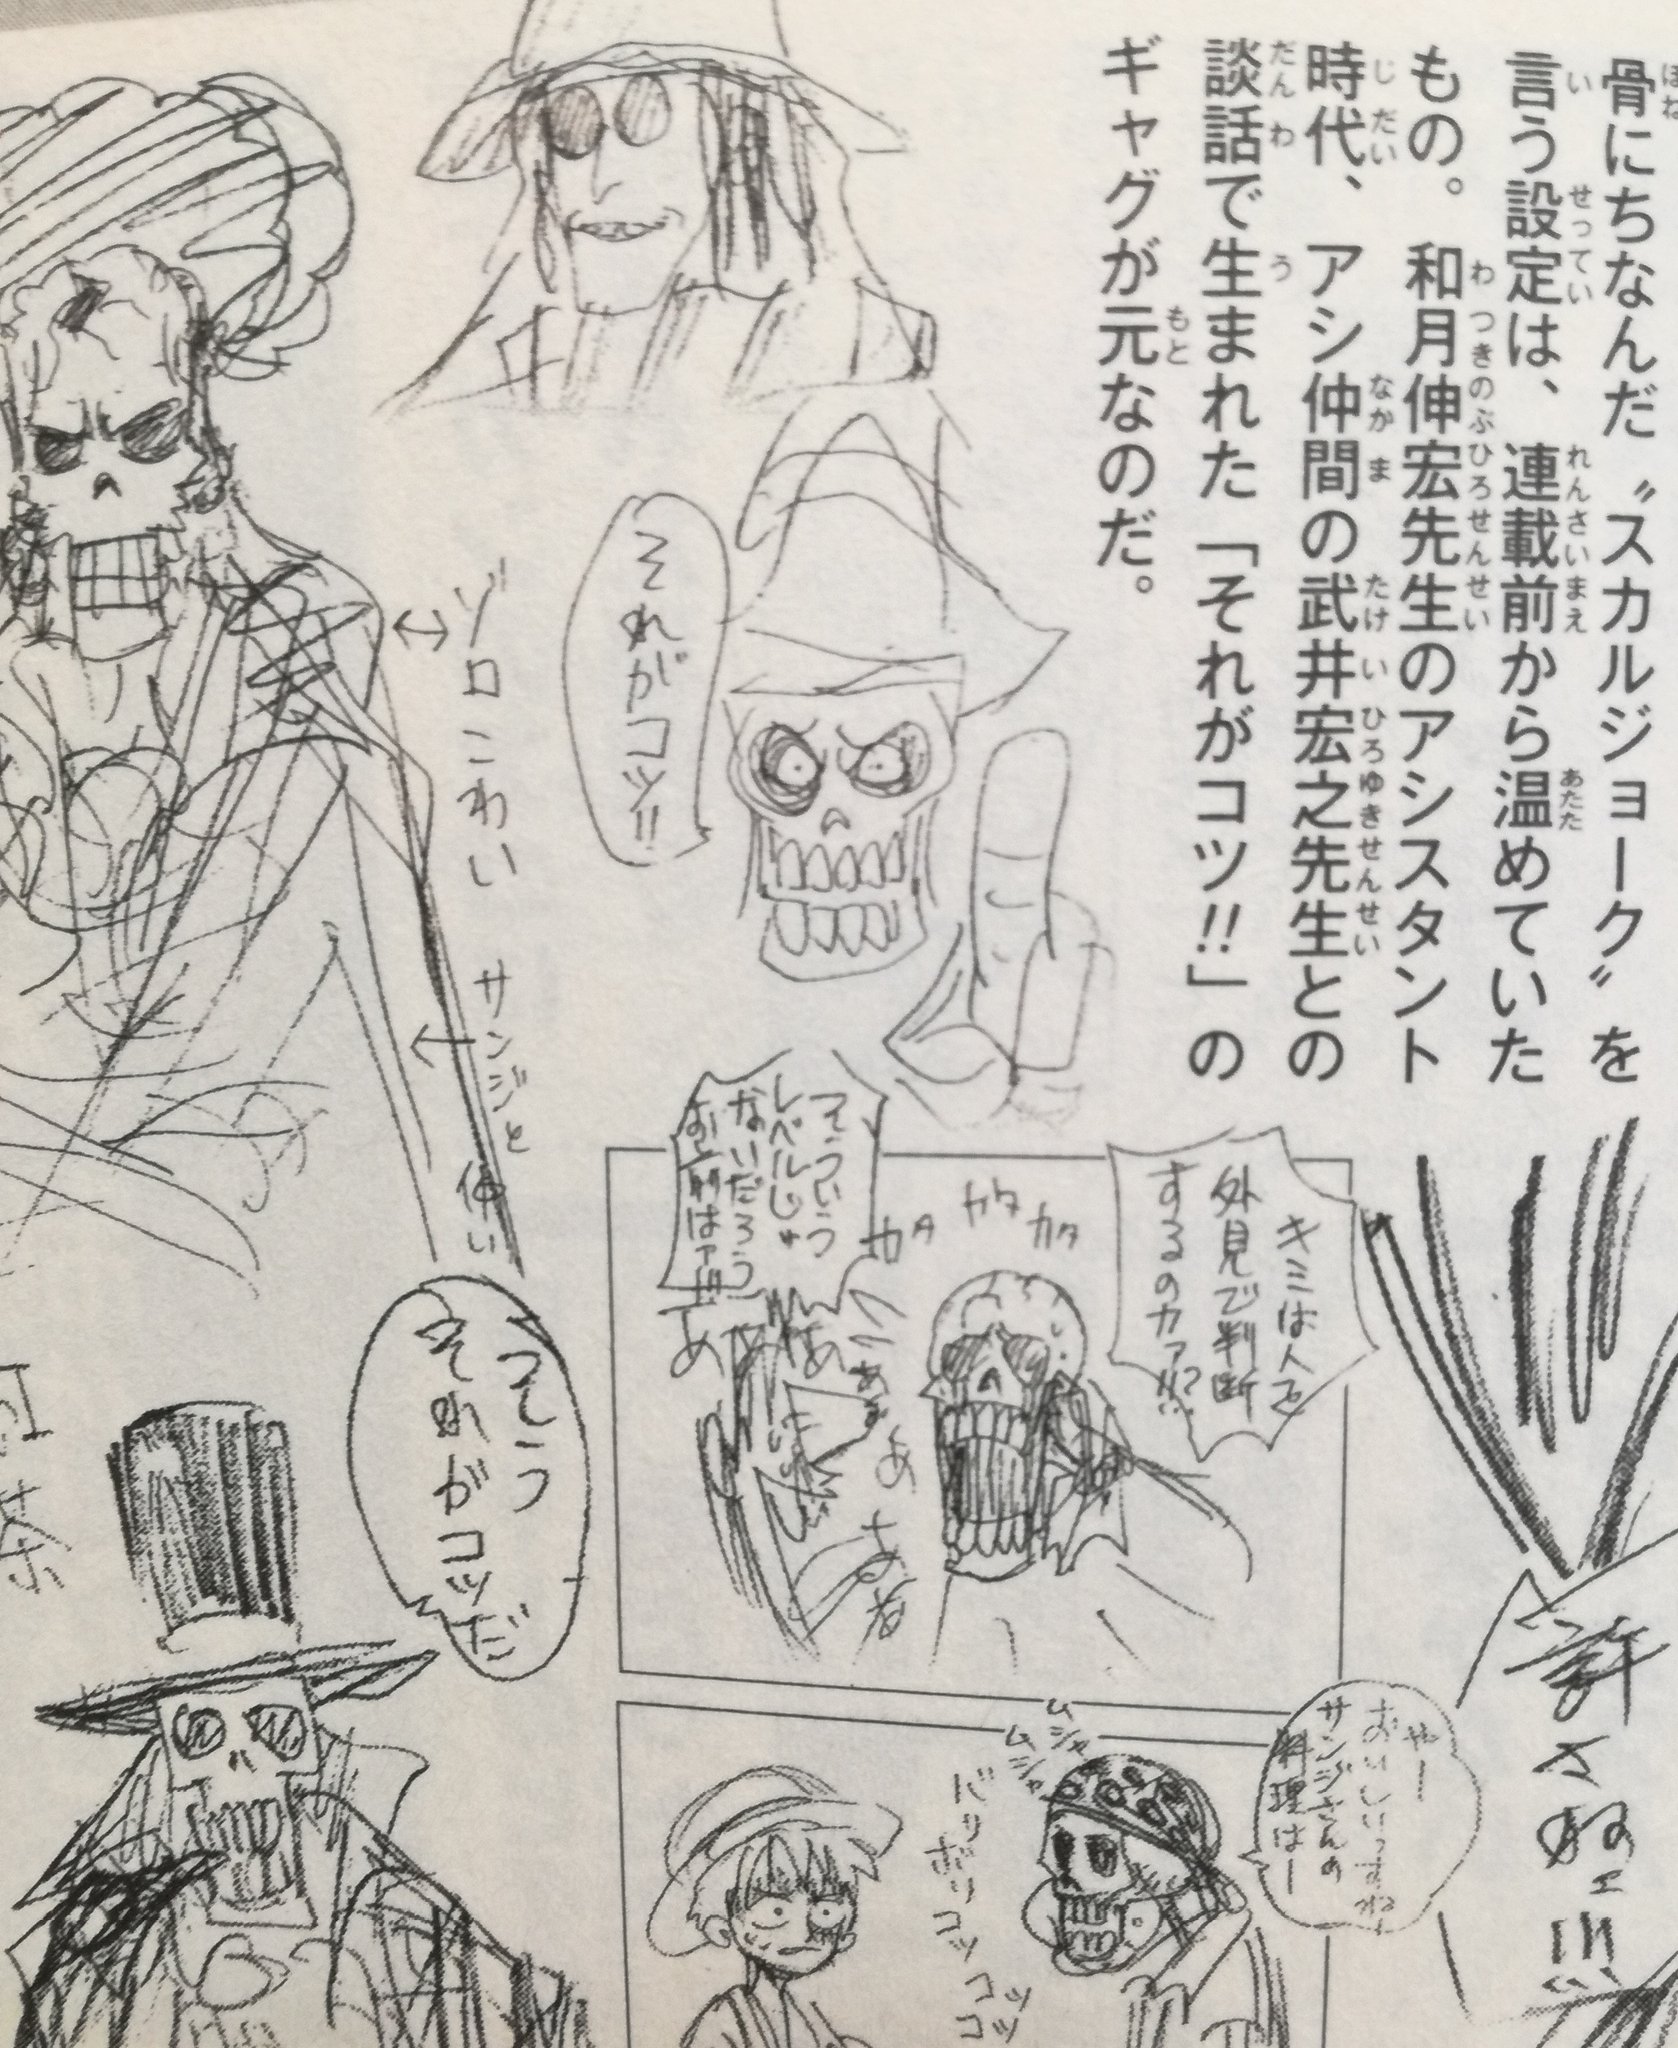 骨にちなんだ〝スカルジョーク〟を
言う設定は、連載前から温めていた
もの。和月伸宏先生のアシスタント
時代、アシ仲間の武井宏之先生との
談話で生まれた「それがコツ!!」の
ギャグが元なのだ。
それがコツ!!
ゾロこわい
サンジと仲いい
キミは人を
外見で判断
するのカァ!!?
カタ
カタ
カタ
そういう
レベルじゃ
ないだろう
お前はァ!!
そう
それがコツだ
許さねェ!!!
やー
おいしいっすねー
サンジさんの
料理はー
ムシャ
ムシャ
バリ
ボリ
コッ
コッ
コッ